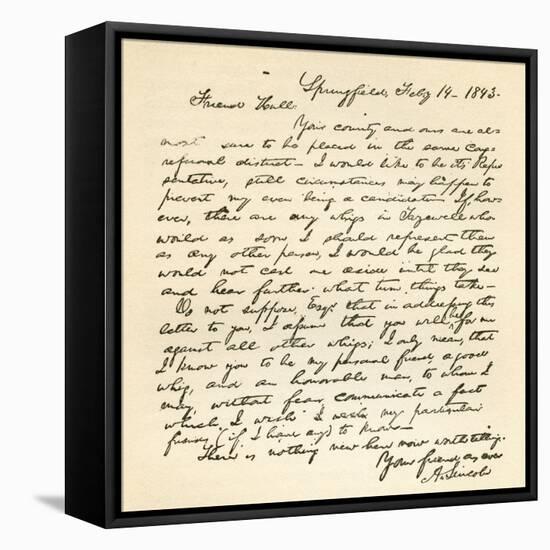 Springfield, Feby 14 - 1843 -
Friend Hull:
Your county and ours are al-
most sure to be placed in the same Cong-
ressional district - I would like to be its Repre
sentative; still circumstances may happen to
prevent my even being a candidate - If, how-
ever, there are any whigs in Tazewell who
would as soon I should represent them
as any other person, I would be glad they
would not cast me aside until they see
and hear further what turn things take -
Do not suppose, Esqr. that in addressing this
letter to you, I assume that you will be for me
against all other whigs; I only mean, that
I know you to be my personal friend, a good
whig, and an honorable man, to whom I
may, without fear, communicate a fact
which I wish my particular
friends (if I have any) to know -
There is nothing new here now worth telling.
Your friend as ever
A. Lincoln